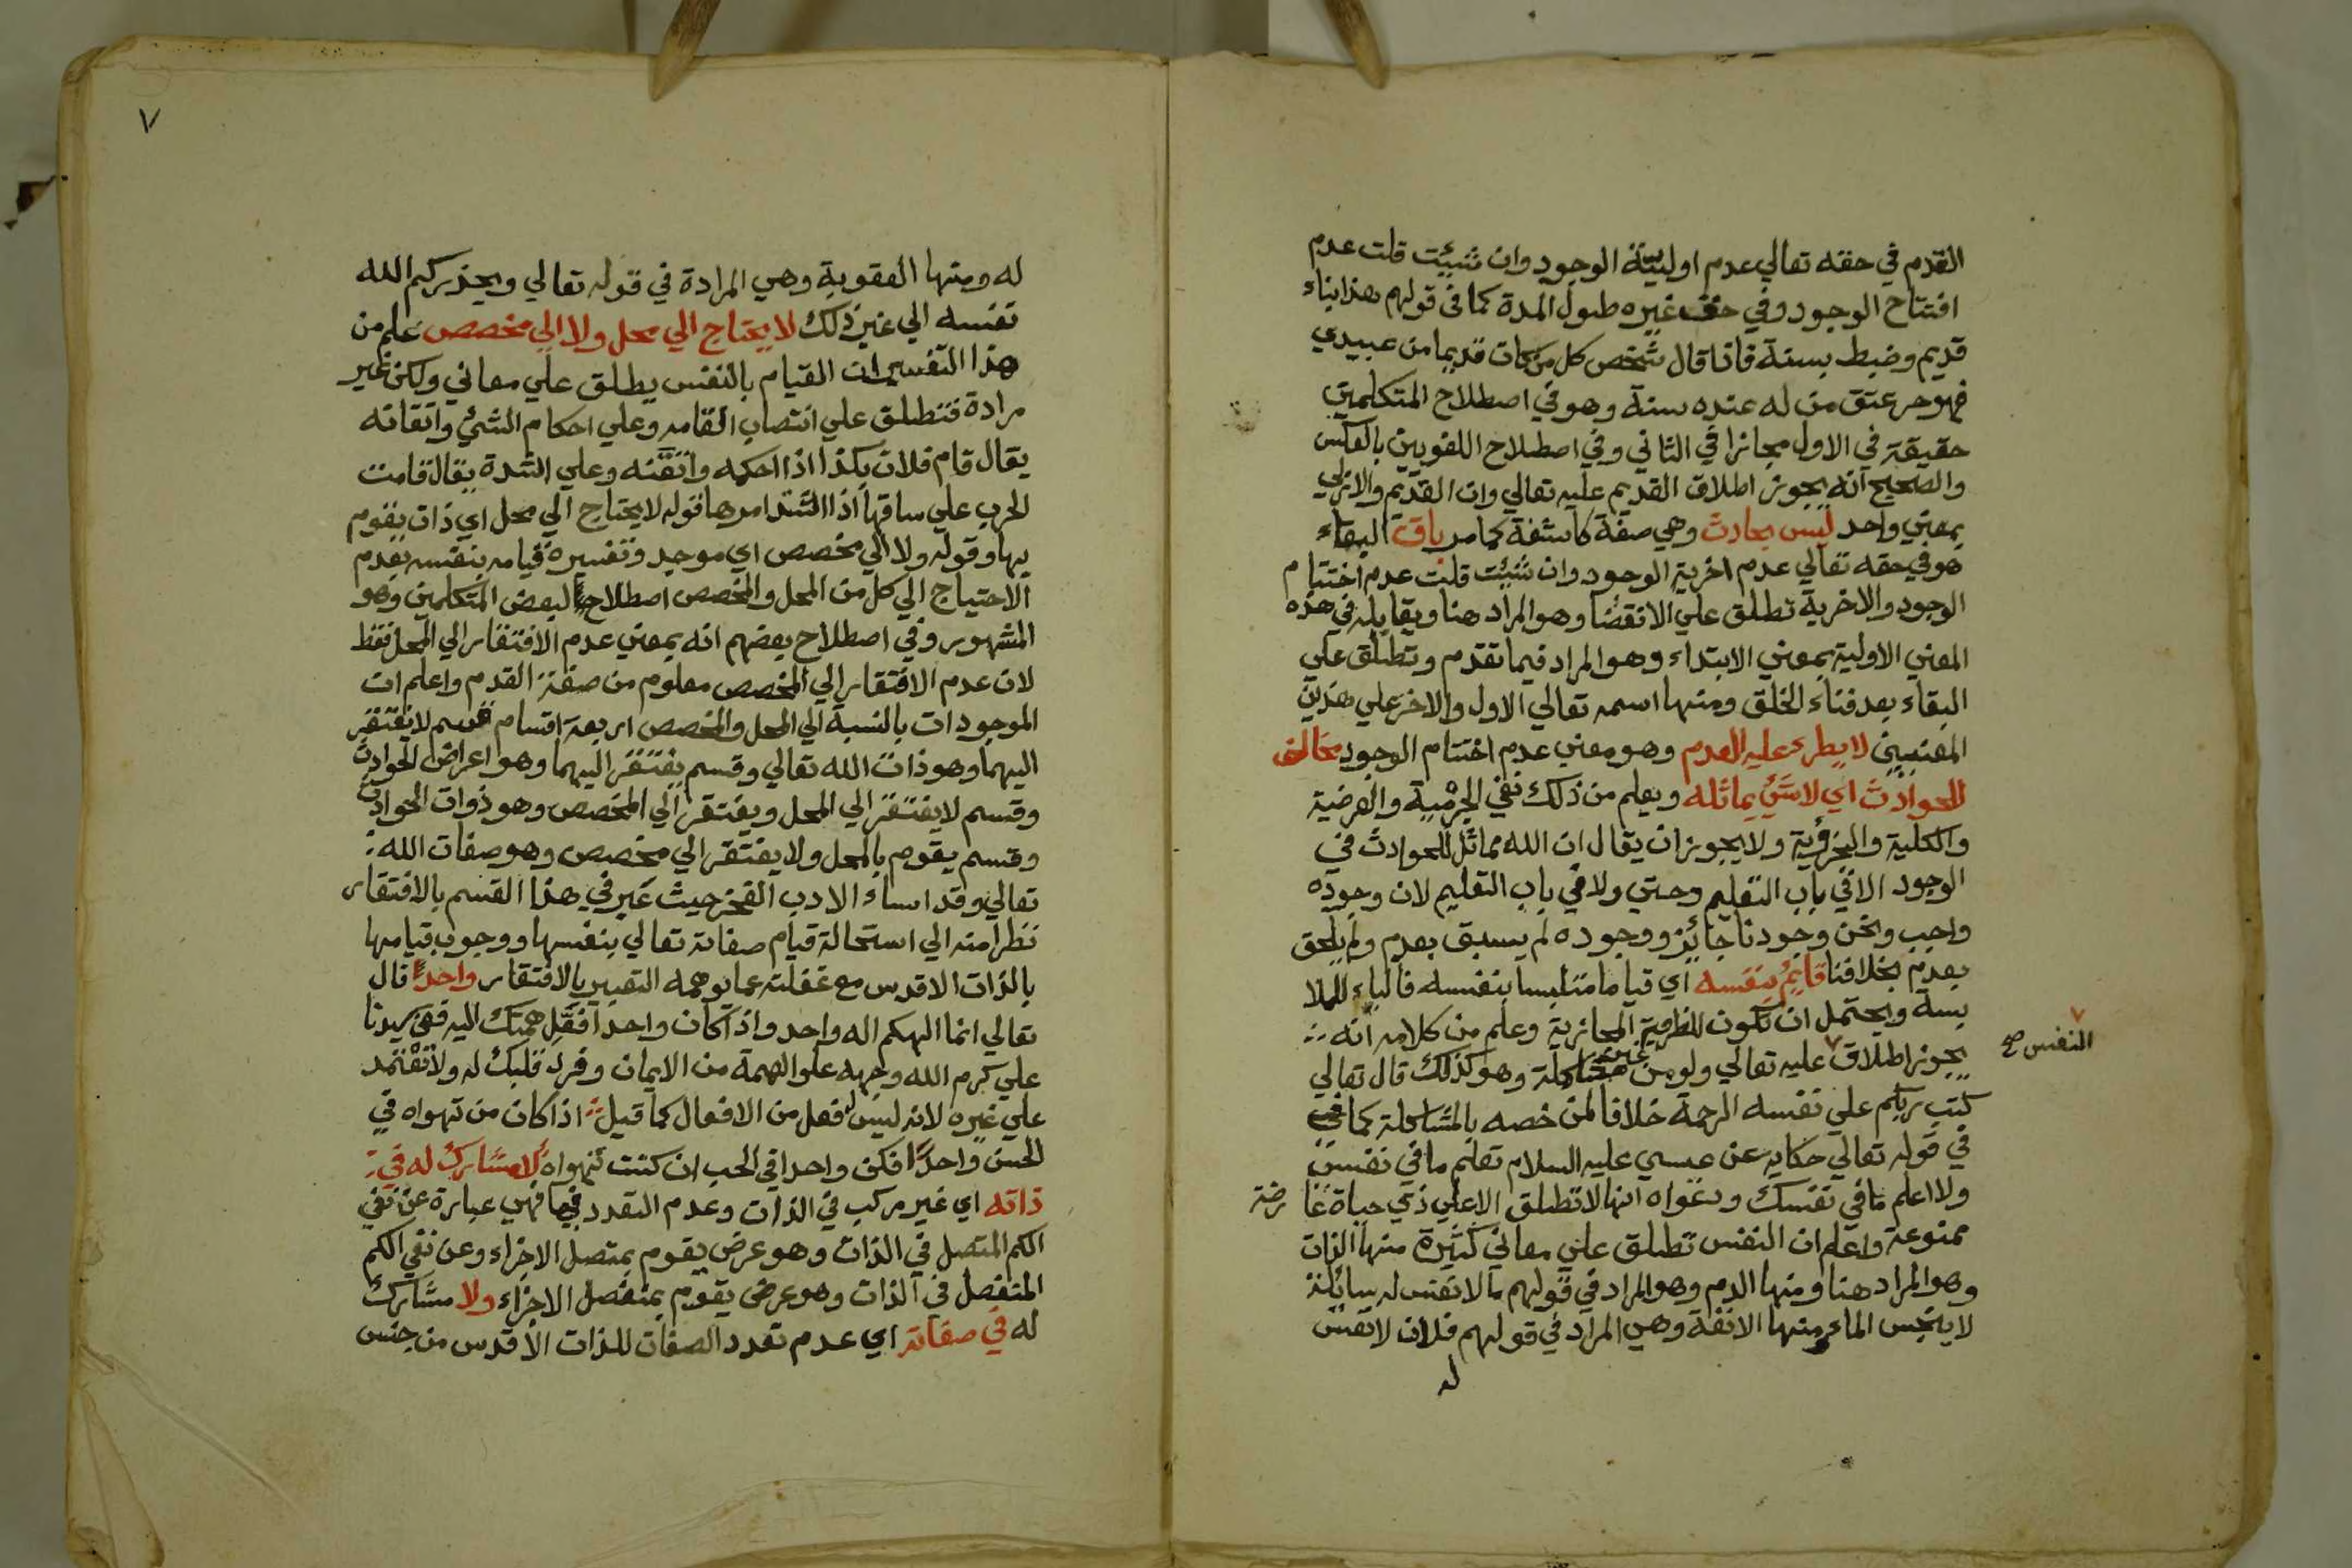 القدم في حقه تعالي عدم اولية الوجود وان شيئت قلت عدم
افتتاح الوجود وفي حق غيره طول المدة كما في قولهم هذا بناء
قديم وضبط بسنة فاذا قال شخص كل من كان قديما من عبيدي
فهو حر عتق من له عنده سنة وهو في اصطلاح المتكلمين
حقيقة في الاول مجازا في الثاني وفي اصطلاح اللغويين بالعكس
والصحيح انه يجوز اطلاق القديم عليه تعالي وان القديم والازلي
بمعني واحد ليس بحادث وهي صفة كاشفة كما مر باق البقاء
هو في حقه تعالي عدم اخرية الوجود وان شيئت قلت عدم اختتام
الوجود والاخرية تطلق علي الانقضا وهو المراد هنا ويقابله في هذه
المعني الاولية بمعني الابتداء وهو المراد فيما تقدم وتطلق علي
البقاء بعد فناء الخلق ومنها اسمه تعالي الاول والاخر علي هذين
المعنيين لا يطرء عليه العدم وهو معني عدم اختتام الوجود مخالف
للحوادث اي لا شئ يماثله ويعلم من ذلك نفي الجرمية والعرضية
والكلية والجزؤية ولا يجوز ان يقال ان الله مماثل للحوادث في
الوجود الا في باب التعليم وحتي ولا في باب التعليم لان وجوده
واجب ونحن وجودنا جائز ووجوده لم يسبق بعدم ولم يلحق
بعدم بخلافنا قايم بنفسه اي قياما متلبسا بنفسه فالباء للملا
بسة ويحتمل ان تكون للظرفية المجازية وعلم من كلامه انه
يجوز اطلاق عليه تعالي ولو من غير مشاكلة وهو كذلك قال تعالي
النفس صح
كتب ربكم علي نفسه الرحمة خلافا لمن خصه بالمشاكلة كما في
في قوله تعالي حكاية عن عيسي عليه السلام تعلم ما في نفسي
ولا اعلم ما في نفسك ودعواه انها لا تطلق الا علي ذي حياة عا رضة
ممنوعة واعلم ان النفس تطلق علي معاني كثيرة منها الذات
وهو المراد هنا ومنها الدم وهو المراد في قولهم ما لا نفس له سائلة
لا ينجس الماء ومنها الانفة وهي المراد في قولهم فلان لا نفس
له
٧
له ومنها العقوبة وهي المرادة في قوله تعالي ويحذركم الله
نفسه الي غير ذلك لا يحتاج الي محل ولا الي مخصص علم من
هذا التفسير ان القيام بالنفس يطلق علي معاني ولكن غير
مرادة فتطلق علي انتصاب القامه وعلي احكام الشئ واتقانه
يقال قام فلان بكذا اذا احكمه واتقنه وعلي الشدة يقال قامت
الحرب علي ساقها اذا اشتد امرها قوله لا يحتاج الي محل اي ذات يقوم
بها وقوله ولا الي مخصص اي موجد وتفسيره قيامه بنفسه بعدم
الاحتياج الي كل من المحل والمخصص اصطلاح لبعض المتكلمين وهو
المشهور وفي اصطلاح بعضهم انه بمعني عدم الافتقار الي المحل فقط
لان عدم الافتقار الي المخصص معلوم من صفة القدم واعلم ان
الموجودات بالنسبة الي المحل والمخصص اربعة اقسام قسم لا يفتقر
اليهما وهو ذات الله تعالي وقسم يفتقر اليهما وهو اعراض الحوادث
وقسم لا يفتقر الي المحل ويفتقر الي المخصص وهو ذوات الحوادث
وقسم يقوم بالمحل ولا يفتقر الي مخصص وهو صفات الله
تعالي وقد اساء الادب الفخر حيث عبر في هذا القسم بالافتقار
نظرا منه الي استحالة قيام صفاته تعالي بنفسها ووجوب قيامها
بالذات الاقدس مع غفلته عما يوهمه التعبير بالافتقار واحد قال
تعالي انما الهكم اله واحد واذا كان واحدا همتك اليه
علي كرم الله وجهه علو الهمة من الايمان وفرد قلبك له ولا تعتمد
علي غيره لانه ليس له فعل من الافعال كما قيل اذا كان من تهواه في
الحسن واحدا فكن واحدا في الحب ان كنت تهواه لا مشارك له في
ذاته اي غير مركب في الذات وعدم التعدد فيها فهي عبارة عن نفي
الكم المتصل في الذات وهو عرض يقوم بمتصل الاجزاء وعن نفي الكم
المنفصل في الذات وهو عرض يقوم بمنفصل الاجزاء ولا مشارك
له في صفاته اي عدم تعدد الصفات للذات الاقدس من جنس